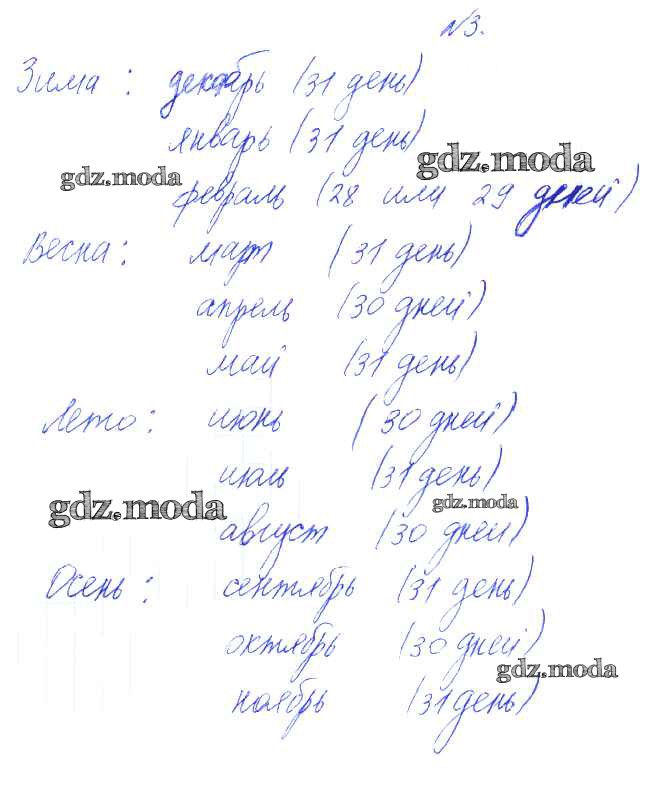 №3.
Зима: декабрь (31 день)
январь (31 день)
gdz.moda
gdz.moda
февраль (28 или 29 дней)
Весна: март (31 день)
апрель (30 дней)
май (31 день)
Лето: июнь (30 дней)
июль (31 день)
gdz.moda
gdz.moda
август (30 дней)
Осень: сентябрь (31 день)
октябрь (30 дней)
gdz.moda
ноябрь (31 день)